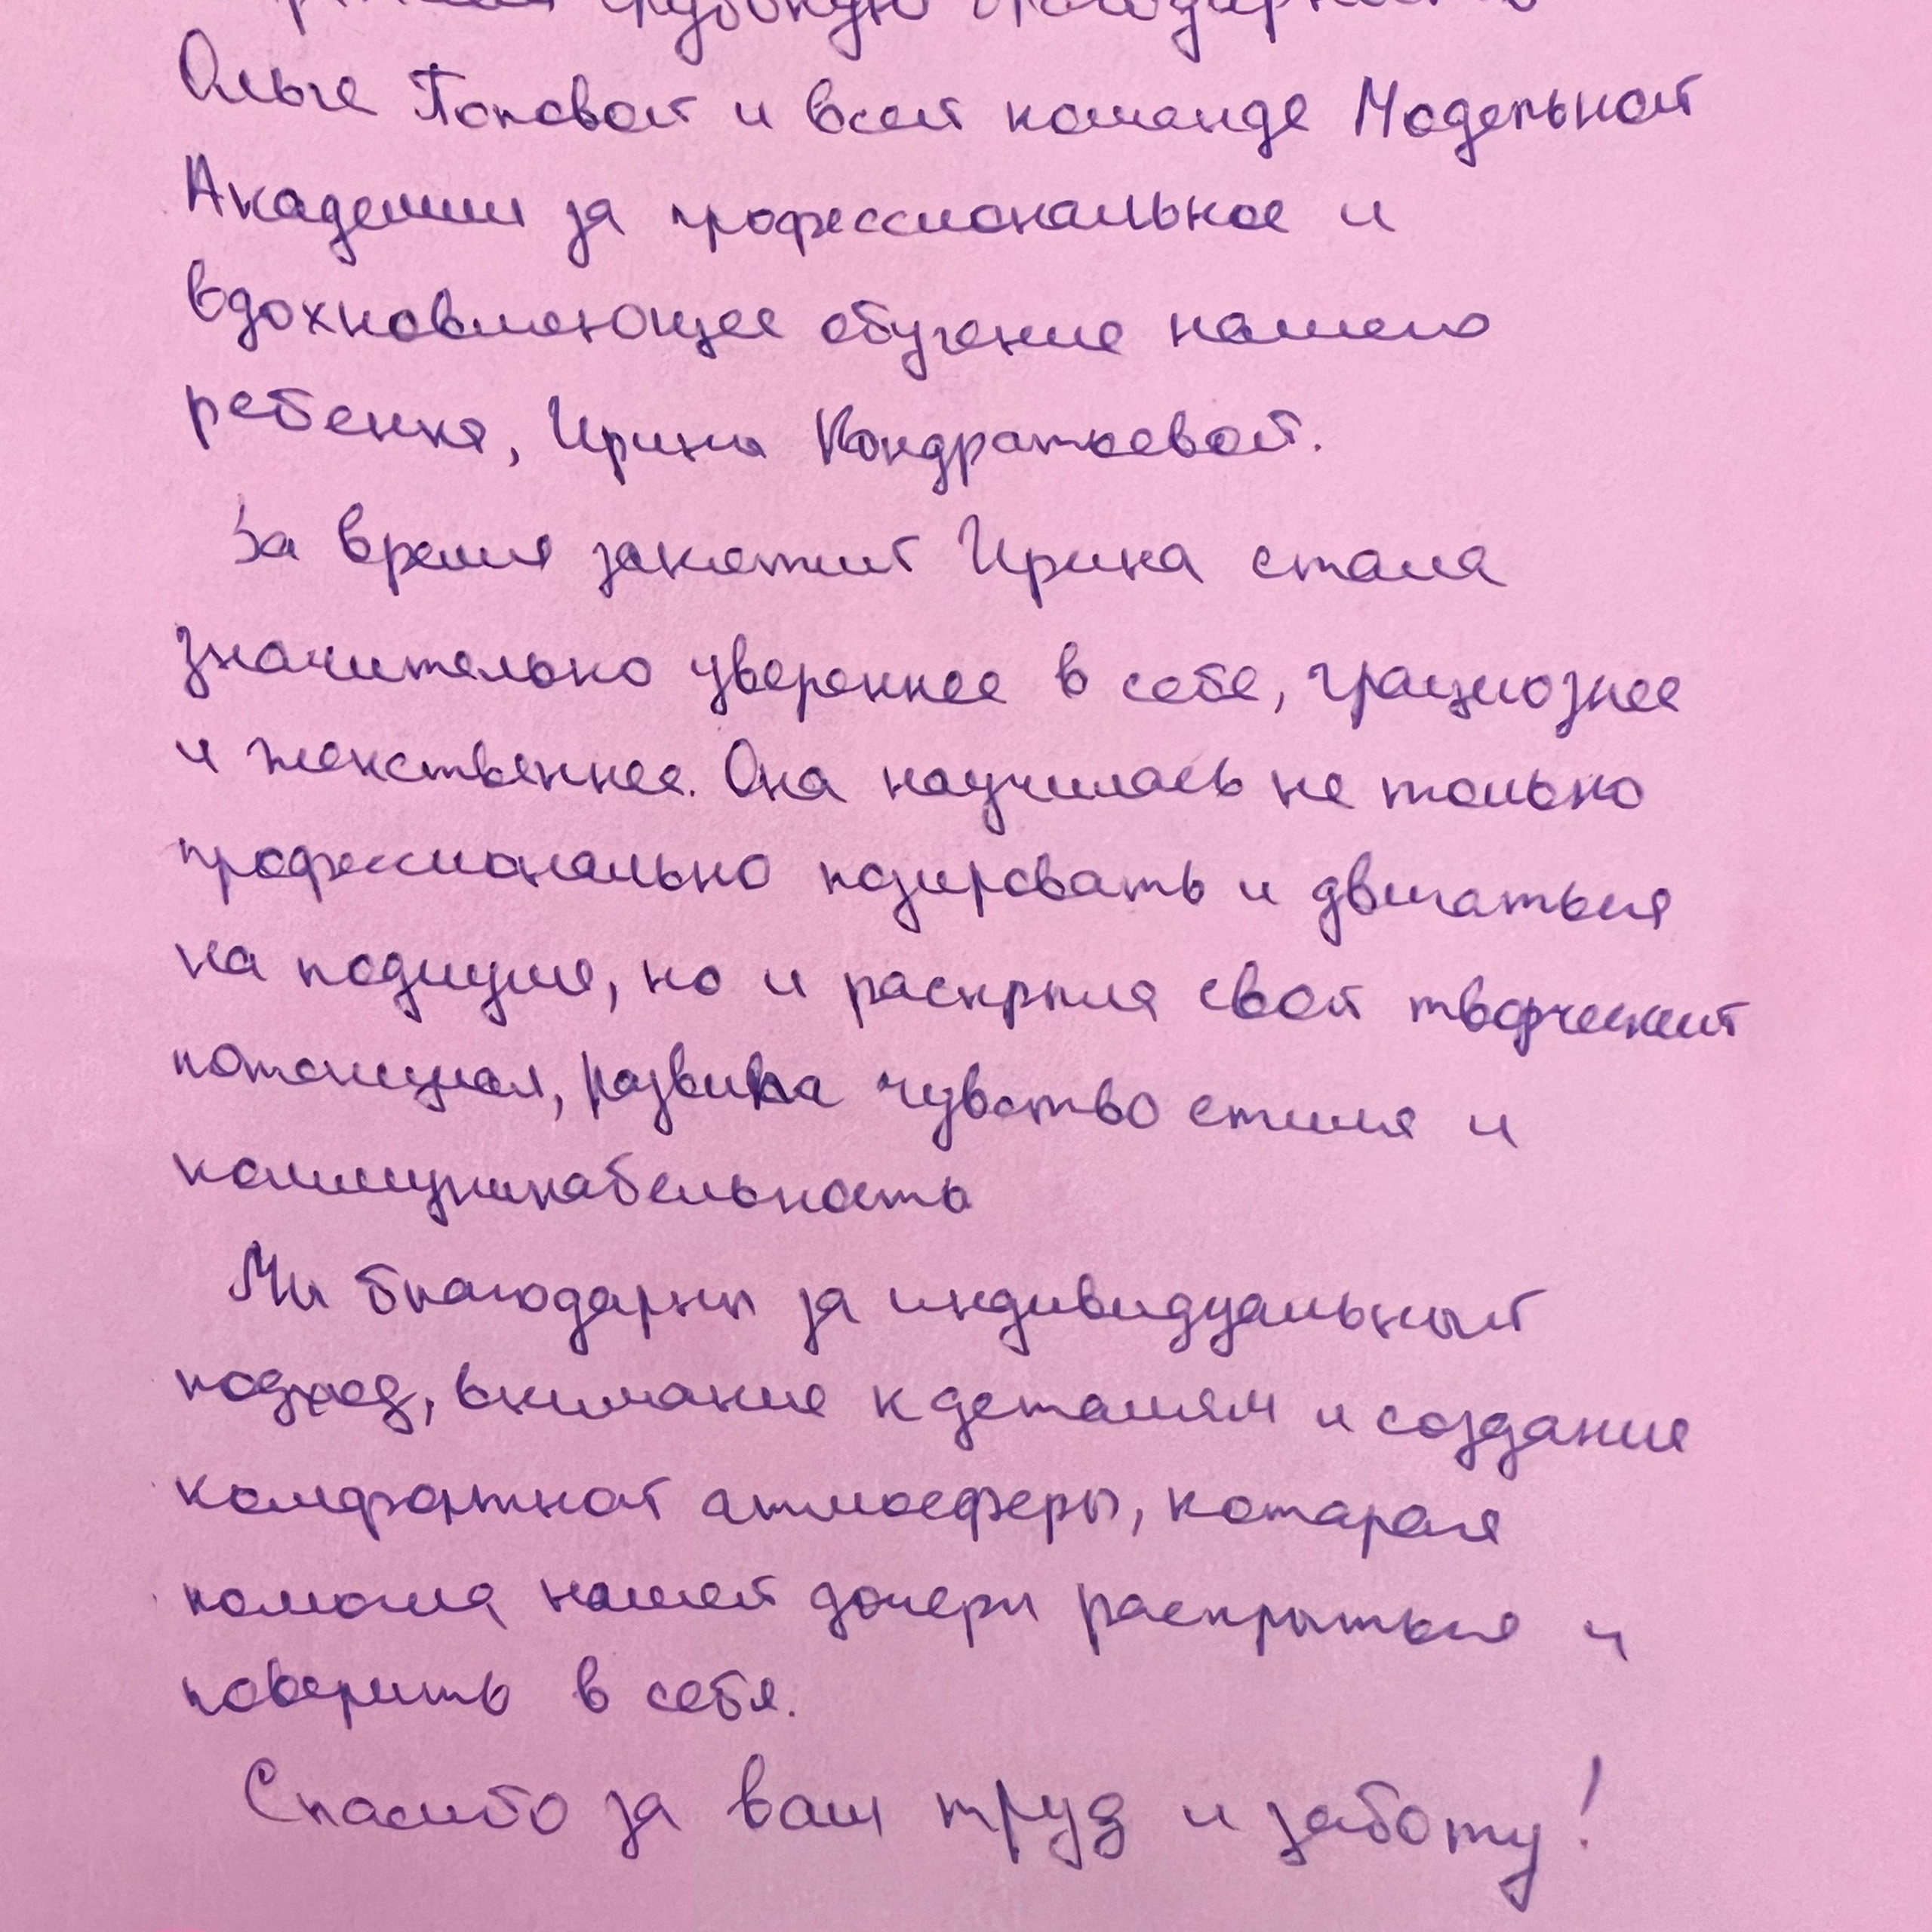 глубокую благодарность
Ольге Поповой и всей команде Модельной
Академии за профессиональное и
вдохновляющее обучение нашего
ребенка, Ирины Кондратьевой.
За время занятий Ирина стала
значительно увереннее в себе, грациознее
и женственнее. Она научилась не только
профессионально позировать и двигаться
на подиуме, но и раскрыла свой творческий
потенциал, развила чувство стиля и
коммуникабельность
Мы благодарны за индивидуальный
подход, внимание к деталям и создание
комфортной атмосферы, которая
помогла нашей дочери раскрыться и
поверить в себя.
Спасибо за ваш труд и заботу!